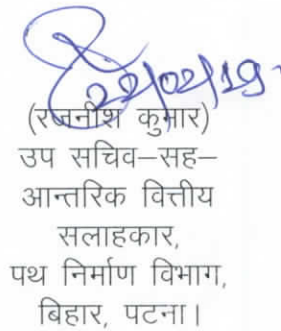 22/02/19
(रजनीश कुमार)
उप सचिव–सह–
आन्तरिक वित्तीय
सलाहकार,
पथ निर्माण विभाग,
बिहार, पटना।